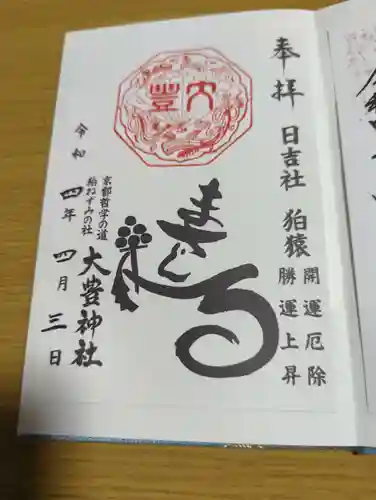 奉拝
日吉社 狛猿
開運厄除
勝運上昇
大豊
まさる
京都哲学の道
狛ねずみの社
大豊神社
令和四年四月三日